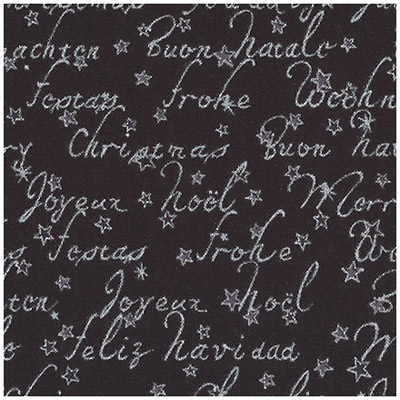 nachten Buon Natale
Festas frohe Weihn
ry Christmas Buon na
Joyeux Noël Merr
Festas frohe W
hten Joyeux Noël
feliz navidad Me